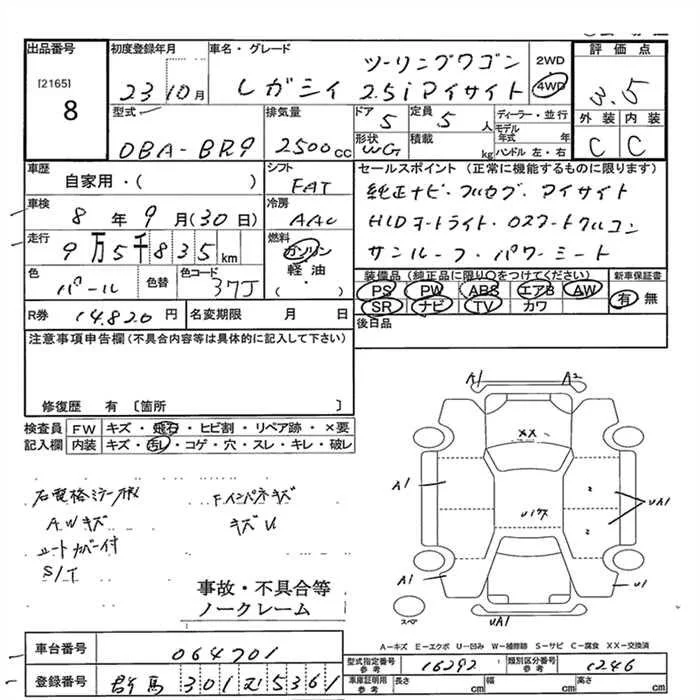 出品番号 初度登録年月 車名・グレード 評価点
[2165] ツーリングワゴン 2WD
8 23 10月 レガシィ 2.5iアイサイト 4WD 3.5
型式 排気量 ドア 定員 ディーラー・並行 外装 内装
5 5人 モデル年式 年
DBA-BR9 2500cc 形状 WG 積載 kg ハンドル 左・右 C C
車歴 シフト セールスポイント (正常に機能するものに限ります)
自家用・( ) FAT 純正ナビ・フルセグ・アイサイト
車検 8年9月(30日) 冷房 AAC HIDオートライト・
走行 9万5千835km 燃料 ガソリン サンルーフ・パワーシート
軽油
( ・ )
色 パール 色替 色コード 37J
装備品(純正品に限り○をつけてください) 新車保証書
PS PW ABS エアB AW 有 無
SR ナビ TV カワ
R券 14.820円 名変期限 月 日 後日品
注意事項申告欄(不具合内容等は具体的に記入して下さい)
修復歴 有 〔箇所 〕
検査員 FW キズ・飛石・ヒビ割・リペア跡・×要
記入欄 内装 キズ・汚レ・コゲ・穴・スレ・キレ・破レ
A1 A2
XX
A1 2 UA1
Uパクス 2
A1 U1
スペア UA1
FインパネキズA
キズU
AWキズ
シートカバー付
S/T
事故・不具合等
ノークレーム
A―キズ E―エクボ U―凹み W―補修跡 S―サビ C―腐食 XX―交換済
車台番号 064701
型式指定番号 参考 16292 類別区分番号 参考 1246
登録番号 群馬 301 む 5361
車庫証明用 参考 長さ cm 幅 cm 高さ cm